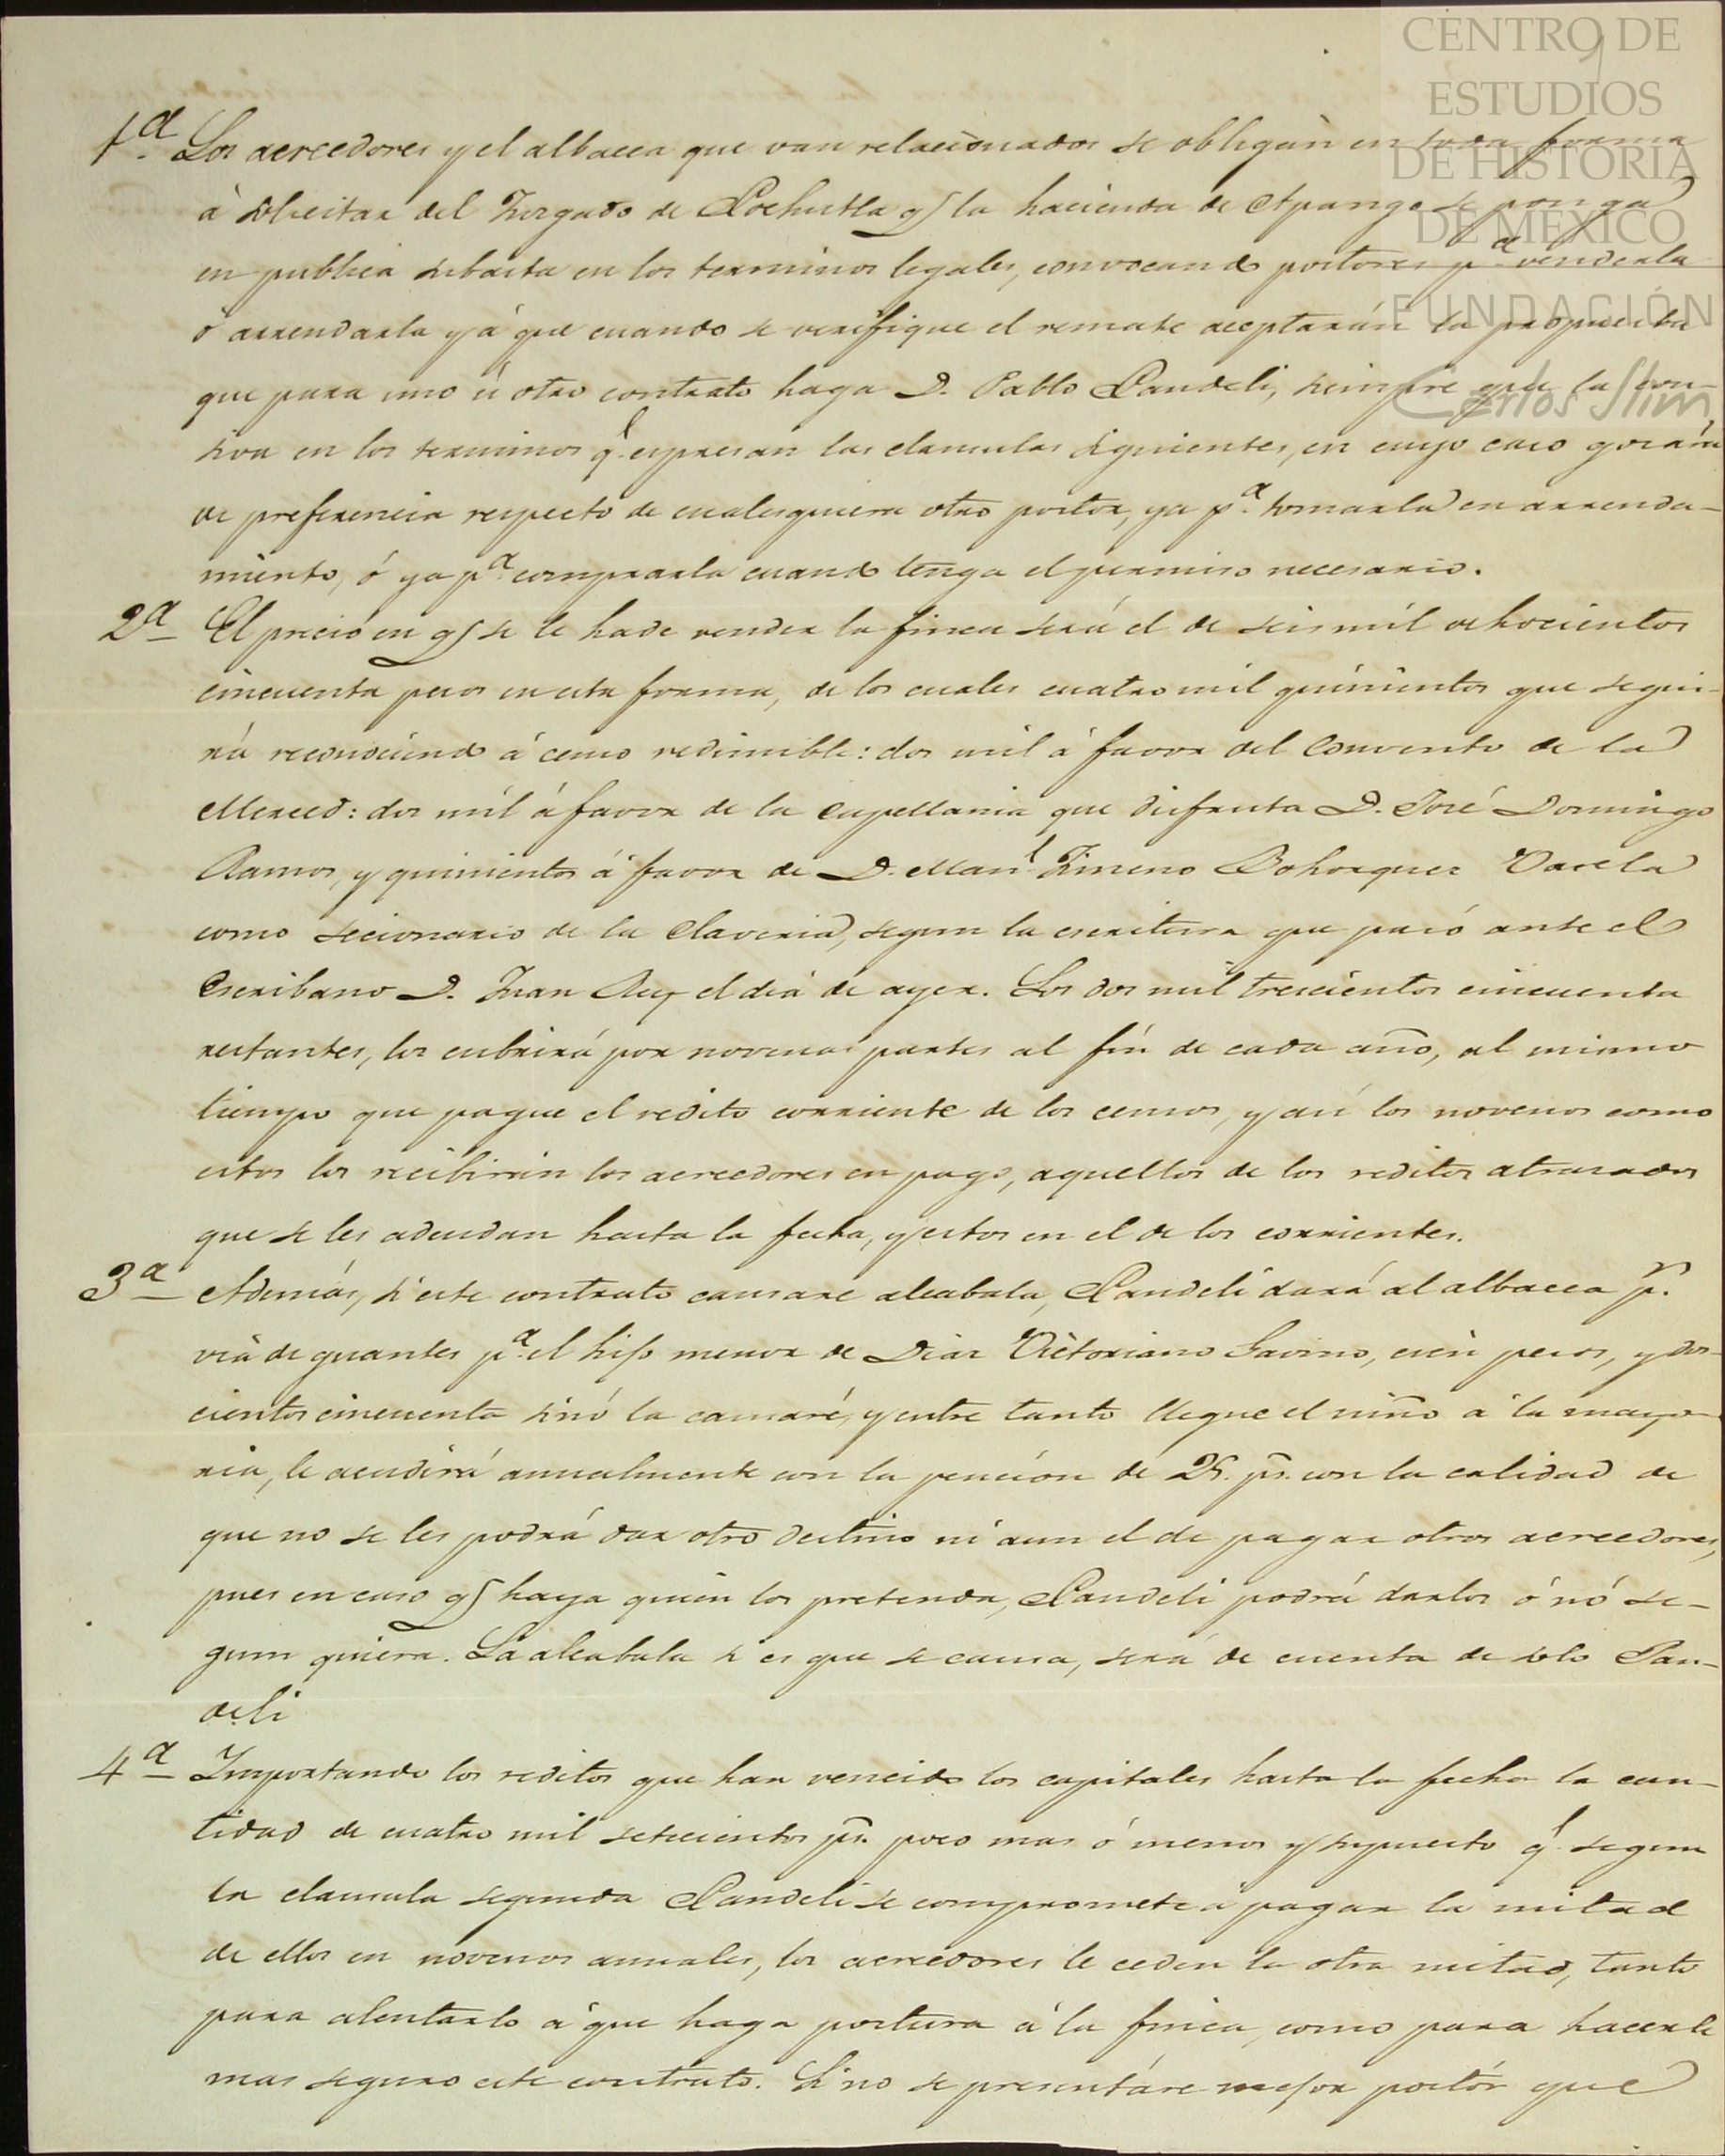 CENTRO DE
ESTUDIOS
DE HISTORIA
DE MÉXICO
FUNDACIÓN
Carlos Slim
1.ª Los acreedores y el albacea que van relacionados se obligan en toda forma
à solicitar del Juzgado de Pochutla q.e la hacienda de Apango se ponga
en publica subasta en los terminos legales, convocando postores p.ª venderla
ó arrendarla y á que cuando se verifique el remate aceptarán la propuesta
que para uno ú otro contrato haga D. Pablo Pandeli, siempre que la
en los terminos q.e espresan las clausulas siguientes, en cuyo caso gozará
de preferencia respecto de cualesquiera otro postor, ya p.ª tomarla en arrenda-
miento, ó ya p.ª comprarla cuando tenga el permiso necesario.
2.ª El precio en q.e se le ha de vender la finca será el de seis mil ochocientos
cincuenta pesos en esta forma, de los cuales cuatro mil quinientos que segui-
rá reconociendo á censo redimible: dos mil á favor del Convento de la
Merced: dos mil á favor de la capellania que disfruta D. José Domingo
Ramos, y quinientos á favor de D. Man.l Jimeno Bohorquez Varela
como secionario de la Claveria, segun la escritura que pasó ante el
Escribano D. Juan Rey el dia de ayer. Los dos mil trescientos cincuenta
restantes, los cubrirá por novenas partes al fin de cada año, al mismo
tiempo que pague el redito corriente de los censos, y asi los novenos como
estos los recibirán los acreedores en pago, aquellos de los reditos atrasados
que se les adeudan hasta la fecha, y estos en el de los corrientes.
3.ª Además, si este contrato causare alcabala, Pandeli dará al albacea p.r
via de guantes p.ª el hijo menor de Diaz Victoriano Gavino, cien pesos, y dos-
cientos cincuenta sinó la causaré, y entre tanto llegue el niño á la mayo-
ria, le acudirá anualmente con la pencion de 25. p.s con la calidad de
que no se les podrá dar otro destino ni aun el de pagar otros acreedores,
pues en caso q.e haya quien los pretenda, Pandeli podrá darlos ó nó se-
gun quiera. La alcabala si es que se causa, será de cuenta de solo Pan-
deli
4.ª Importando los reditos que han vencido los capitales hasta la fecha la can-
tidad de cuatro mil setecientos p.s poco mas ó menos y supuesto q.e segun
la clausula segunda Pandeli se compromete á pagar la mitad
de ellos en novenos anuales, los acreedores le ceden la otra mitad, tanto
para alentarlo á que haga postura á la finca, como para hacerle
mas seguro este contrato. Si no se presentáre mejor postór que